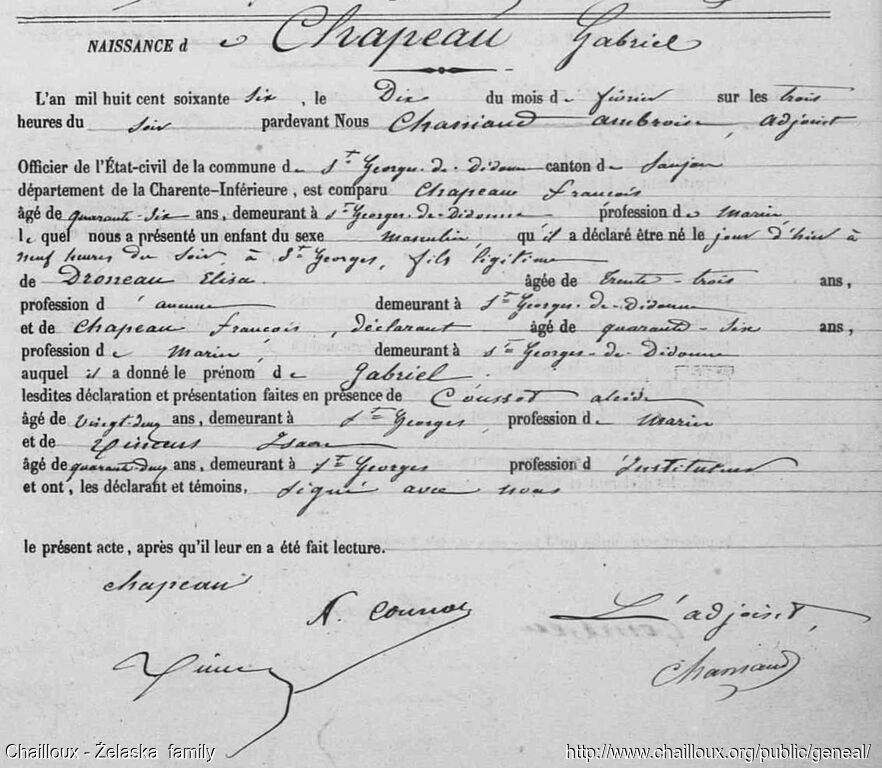 NAISSANCE de Chapeau Gabriel
L'an mil huit cent soixante six, le Dix du mois de février sur les trois
heures du soir pardevant Nous Chassiaud ambroise, adjoint
Officier de l'État-civil de la commune de St Georges-de-Didonne canton de Saujon
département de la Charente-Inférieure, est comparu Chapeau François
âgé de quarante-six ans, demeurant à St Georges-de-Didonne profession de Marin
lequel nous a présenté un enfant du sexe masculin qu'il a déclaré être né le jour d'hier à
neuf heures du soir, à St Georges, fils légitime
de Droneau Elisa âgée de trente-trois ans,
profession d'aucune demeurant à St Georges-de-Didonne
et de Chapeau François, déclarant âgé de quarante-six ans,
profession de Marin, demeurant à St Georges-de-Didonne
auquel il a donné le prénom de Gabriel
lesdites déclaration et présentation faites en présence de Coussot alcide
âgé de vingt-deux ans, demeurant à St Georges, profession de Marin
et de
âgé de quarante-deux ans, demeurant à St Georges profession d'Instituteur
et ont, les déclarant et témoins, signé avec nous
le présent acte, après qu'il leur en a été fait lecture.
chapeau
A.
L'adjoint,
Chassiaud
Chailloux - Želaska family http://www.chailloux.org/public/geneal/